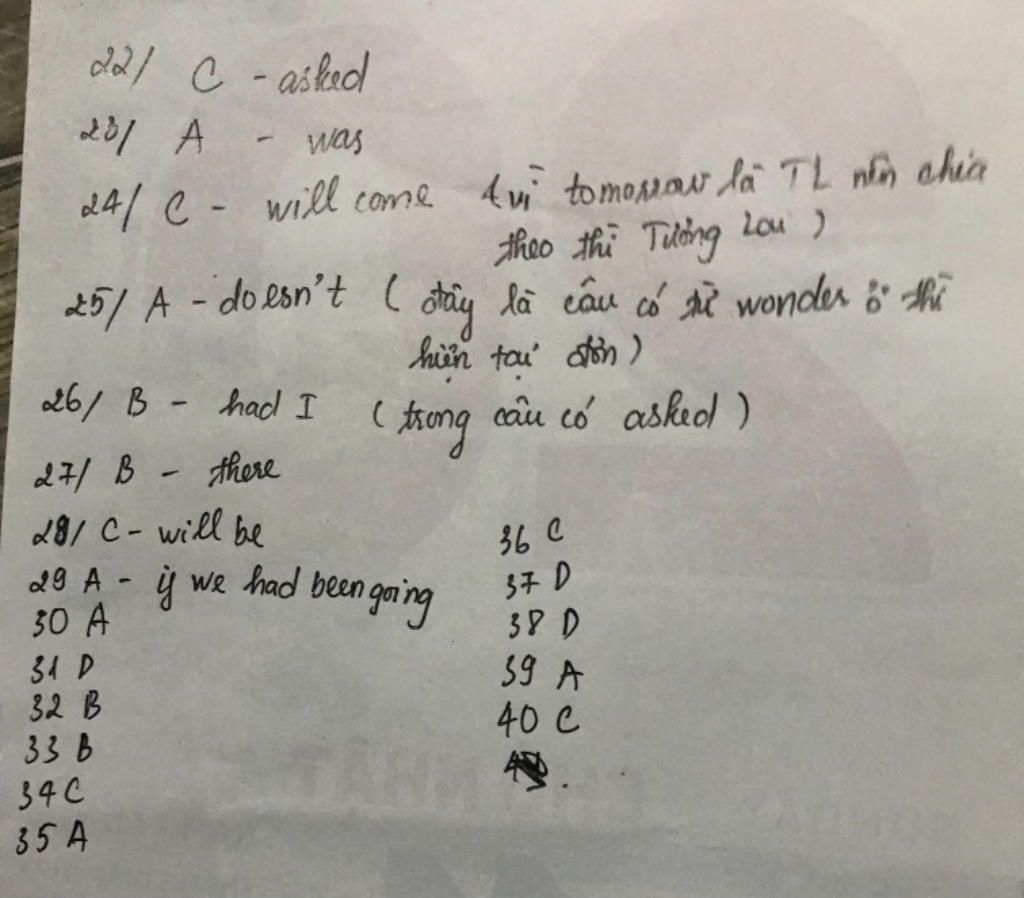 22/ C - asked
23/ A - was
24/ C - will come (vì tomorrow là TL nên chia
theo thì Tương Lai)
25/ A - doesn't (đây là câu có từ wonder ở thì
hiện tại đơn)
26/ B - had I (trong câu có asked)
27/ B - there
28/ C - will be
29 A - if we had been going
30 A
31 D
32 B
33 B
34 C
35 A
36 C
37 D
38 D
39 A
40 C